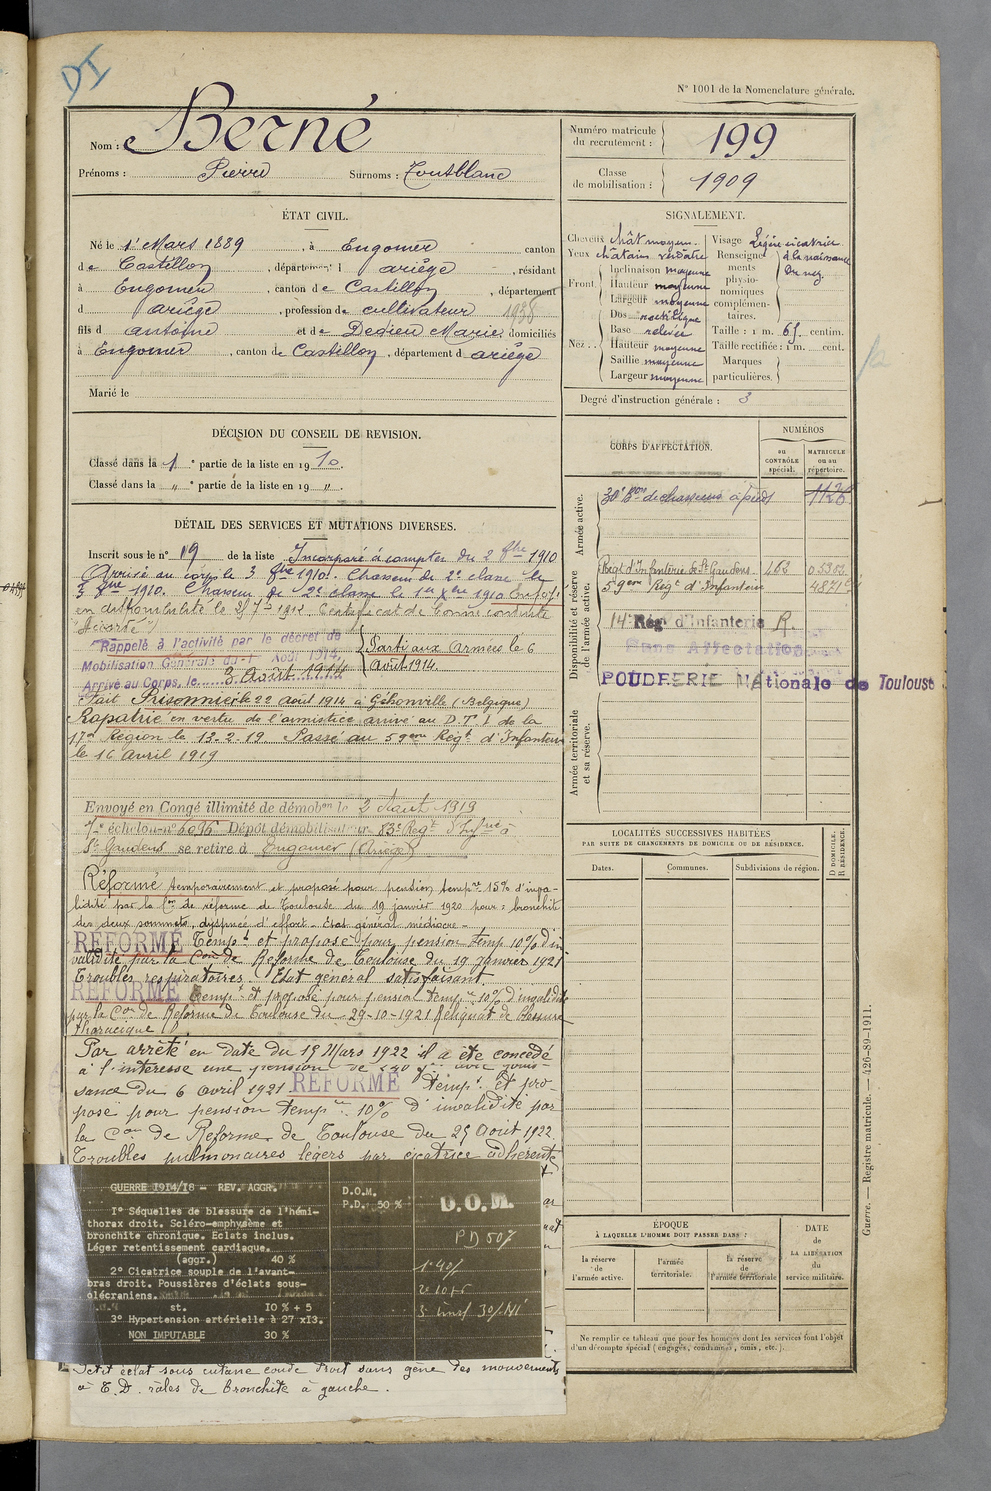 DI
N° 1001 de la Nomenclature générale.
Nom : Berné
Prénoms : Pierre Surnoms : Toutblanc
Numéro matricule du recrutement : 199
Classe de mobilisation : 1909
ÉTAT CIVIL.
Né le 1er Mars 1889, à Engomer canton
de Castillon, département ariège, résidant
à Engomer, canton de Castillon, département
d ariège, profession de cultivateur 1938
fils d antoine et de Dedieu Marie domiciliés
à Engomer, canton de Castillon, département d ariège
Marié le
SIGNALEMENT.
Cheveux chât moyen.
Yeux châtains verdâtre
Front Inclinaison moyenne
Hauteur moyenne
Largeur moyenne
Nez Dos rectiligne
Base relevée
Hauteur moyenne
Saillie moyenne
Largeur moyenne
Visage
Renseignements physionomiques complémentaires. Légère cicatrice à la naissance du nez
Taille : 1 m. 65 centim.
Taille rectifiée : 1 m. cent.
Marques particulières.
Degré d'instruction générale : 3
DÉCISION DU CONSEIL DE REVISION.
Classé dans la 1e partie de la liste en 1910.
Classé dans la " e partie de la liste en 19 " .
DÉTAIL DES SERVICES ET MUTATIONS DIVERSES.
Inscrit sous le n° 119 de la liste Incorporé à compter du 2 8bre 1910
Arrivé au corps le 3 8bre 1910. Chasseur de 2e classe le
3 8bre 1910. Chasseur de 1e classe le 1er Xbre 1910
en disponibilité le 25 7bre 1912 Certificat de bonne conduite
"Accordé"
Rappelé à l'activité par le décret de
Mobilisation Générale du 1 Août 1914.
Arrivé au Corps, le 3 Août 1914
Parti aux Armées le 6
Août 1914.
Fait Prisonnier le 22 août 1914 à Géhonville (Belgique)
Rapatrié en vertu de l'armistice arrivé au D.T.I de la
17e Région le 13-2-19 Passé au 59eme Régt d'Infanterie
le 16 Avril 1919
Envoyé en Congé illimité de démobon le 2 Aout 1919
7e échelon n° 6096 Dépôt démobilisateur 83e Regt d'Infrie à
St Gaudens se retire à Engomer (Ariège)
Réformé temporairement et proposé pour pension tempre 15% d'inva-
lidité par la Con de réforme de Toulouse du 19 janvier 1920 pour : bronchite
des deux sommets, dyspnée d'effort - Etat général médiocre -
REFORMÉ Tempt et proposé pour pension temp 10% d'in
validité par la Con de Reforme de Toulouse du 19 Janvier 1921
Troubles respiratoires. Etat général satisfaisant.
REFORMÉ tempt et proposé pour pension tempre 10% d'invalidité
par la Con de Reforme de Toulouse du 29-10-1921 Reliquat de blessure
thoracique D.
Par arrêté en date du 19 Mars 1922 il a été concédé
à l'intéressé une pension de 240 frs avec jouis-
sance du 6 avril 1921 REFORMÉ tempt. et pro
posé pour pension tempre 10% d'invalidité par
la Con de Reforme de Toulouse du 25 Aout 1922.
Troubles pulmonaires légers par cicatrice adhérente
GUERRE 1914/18 - REV. AGGR.
1° Séquelles de blessure de l'hémi-
thorax droit. Scléro-emphysème et
bronchite chronique. Eclats inclus.
Léger retentissement cardiaque.
(aggr.) 40 %
2° Cicatrice souple de l'avant-
bras droit. Poussières d'éclats sous-
olécraniens.
st. 10 % + 5
3° Hypertension artérielle à 27 x13.
NON IMPUTABLE 30 %
D.O.M.
P.D. 50 %
D.O.M.
PD 50%
1° 40%
2° 10+5
3° 30% NI
Petit éclat sous cutané coude droit sans gène des mouvements
à T.D. râles de bronchite à gauche.
CORPS D'AFFECTATION.
NUMÉROS
au CONTRÔLE spécial.
MATRICULE ou au répertoire.
Armée active.
30e Bon de chasseurs à pieds 1126
Disponibilité et réserve de l'armée active.
Regt d'Infanterie de St Gaudens 163 05303
59eme Régt d'Infanterie 4871
14e Rég d'Infanterie R.
Sans Affectation
POUDRERIE NAtionale de Toulouse
Armée territoriale et sa réserve.
LOCALITÉS SUCCESSIVES HABITÉES
PAR SUITE DE CHANGEMENTS DE DOMICILE OU DE RÉSIDENCE.
Dates. Communes. Subdivisions de région.
D DOMICILE.
R RÉSIDENCE.
ÉPOQUE
À LAQUELLE L'HOMME DOIT PASSER DANS :
la réserve de l'armée active.
l'armée territoriale.
la réserve de l'armée territoriale
DATE de LA LIBÉRATION du service militaire.
Ne remplir ce tableau que pour les hommes dont les services font l'objet
d'un décompte spécial (engagés, condamnés, omis, etc.).
Guerre. — Registre matricule. — 426-89-1911.